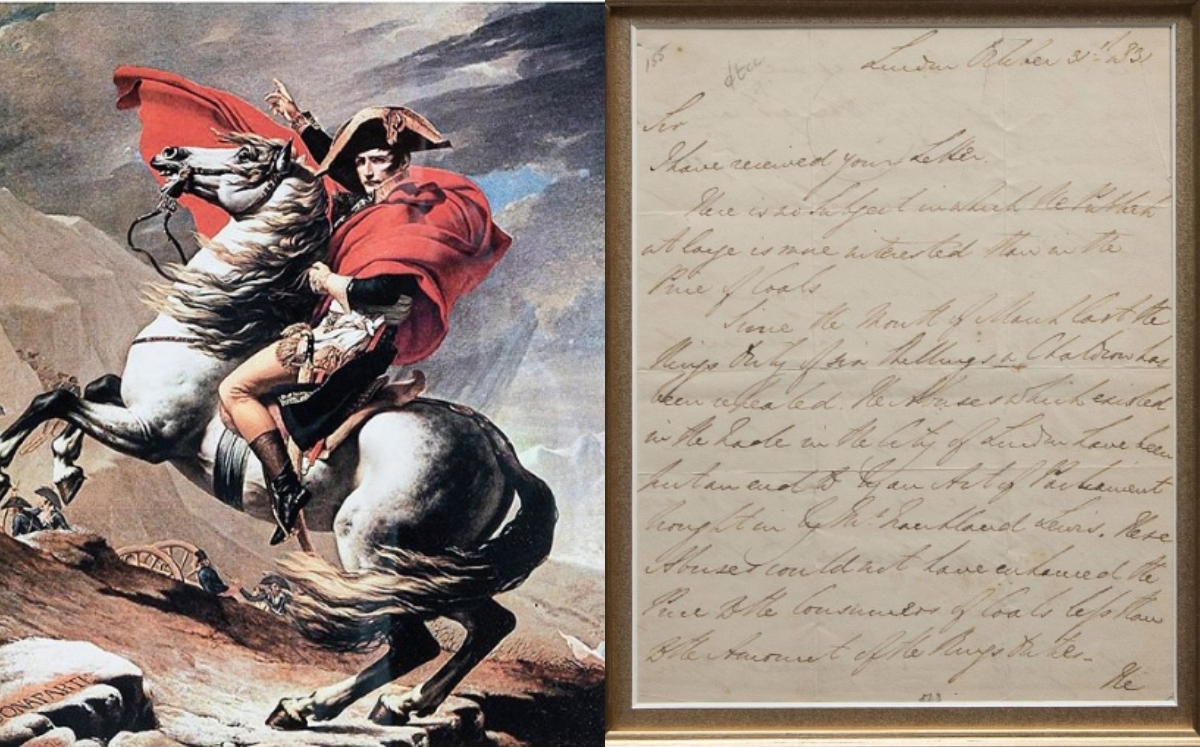 BONAPARTE
155
London October 31st 1831
Sir
I have received your Letter.
There is no subject in which the Publick
at large is more interested than in the
Price of Coals
Since the Month of March last the
Kings Duty of six shillings a Chaldron has
been repealed. The Abuses which existed
in the Trade in the City of London have been
put an end to by an Act of Parliament
brought in by Mr Frankland Lewis. These
Abuses could not have enhanced the
Price to the Consumers of Coals less than
to the Amount of the Kings Duties.
The